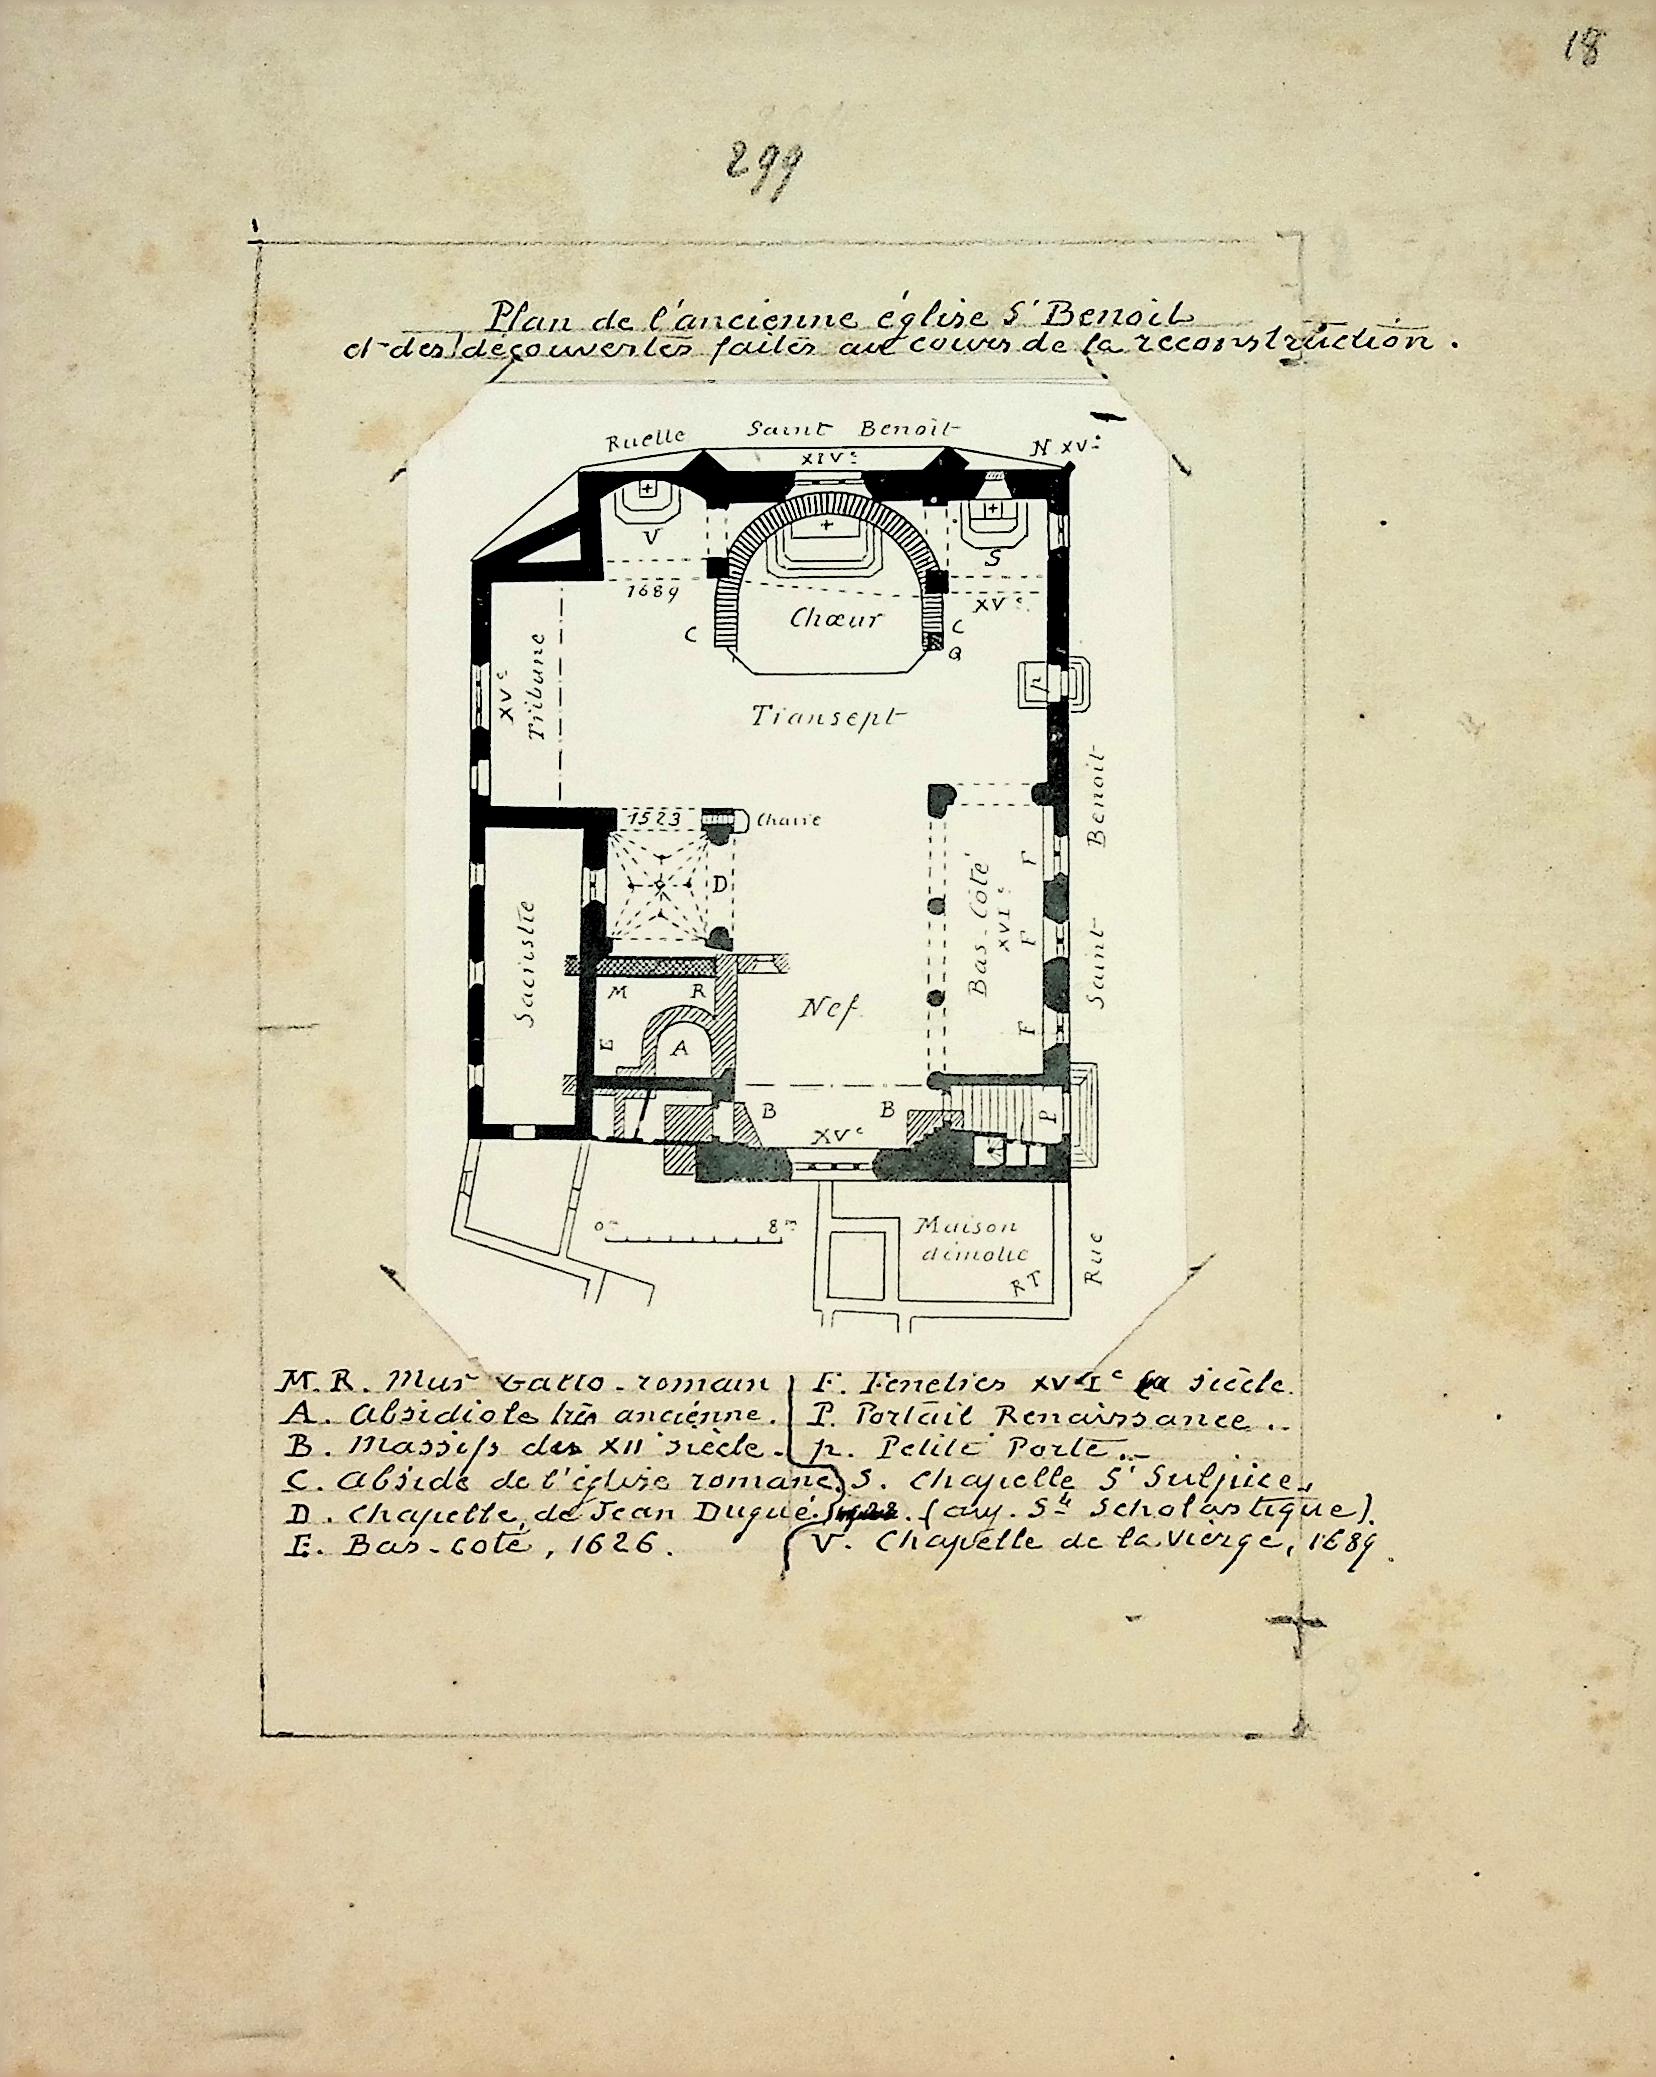 18
299
Plan de l'ancienne église S^t Benoit
et des découvertes faites au cours de la reconstruction.
Ruelle Saint Benoît
XIV^e
N XV^e
V
S
1689
XV^e
Chœur
C
C
Q
XV^e
Tribune
Transept
p
1523
Chaire
D
Sacristie
M R
E
A
Nef
Bas-Côté
XVI^e
F
F
F
B B
XV^e
P
Rue Saint Benoit
0^m 8^m
Maison
démolie
RT
M. R. Mur Gallo-romain
A. Absidiole très ancienne.
B. Massifs des XII^e siècle.
C. Abside de l'église romane.
D. Chapelle de Jean Dugué.
E. Bas-coté, 1626.
F. Fenetres XVI^e siècle.
P. Portail Renaissance..
p. Petite Porte..
S. Chapelle S^t Sulpice,
(auj. S^te Scholastique).
V. Chapelle de la Vierge, 1689.